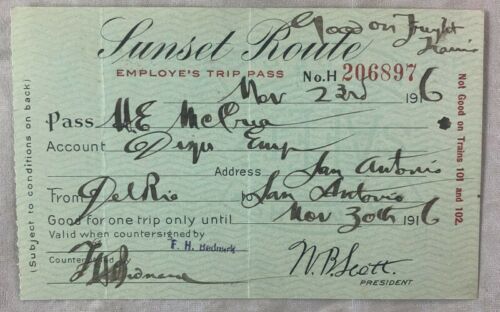 Good on Freight
Trains
Sunset Route
EMPLOYE'S TRIP PASS No. H 206897
Nov 23rd 1916
Pass
Account
Address San Antonio
From Del Rio to San Antonio
Good for one trip only until Nov 30th 1916
Valid when countersigned by
F. H.
Countersigned
W.B. Scott.
PRESIDENT
(Subject to conditions on back)
Not Good on Trains 101 and 102